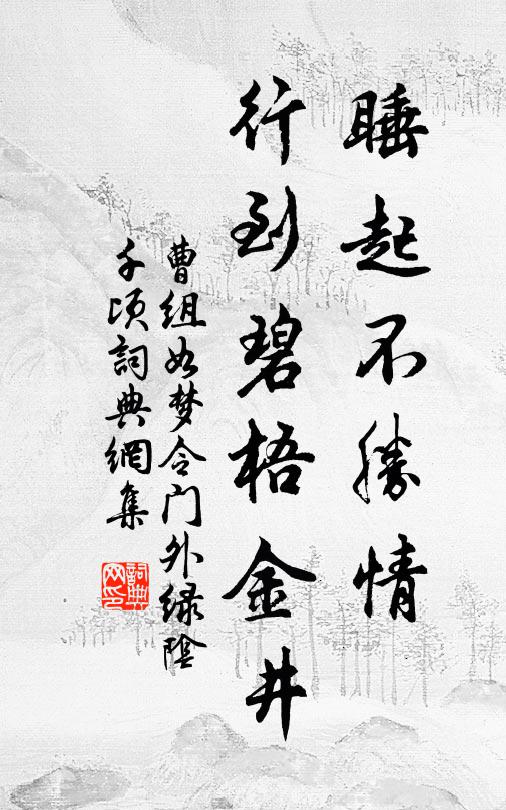 睡起不勝情
行到碧梧金井
曹组如梦令门外绿陰
千顷詞典網集
詞典
网印